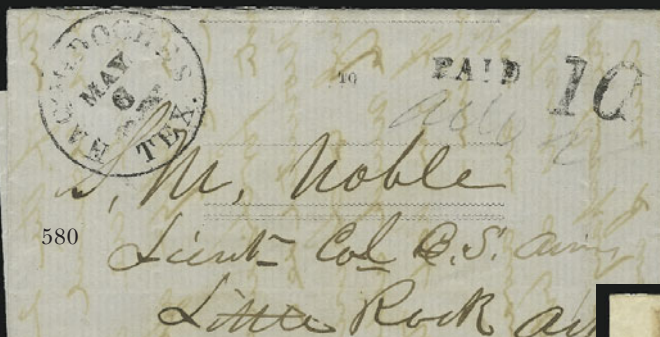 NACOGDOCHES
TEX.
MAY
6
TO
PAID 10
S, M, Noble
580
Lieut Col C.S. Army
Little Rock